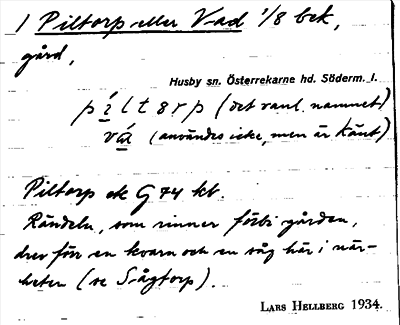 1 Piltorp eller Vad 1/8 bek,
gård,
Husby sn. Österrekarne hd. Söderm. l.
píltørp (det vanl. namnet)
vá (användes icke, men är känt)
Piltorp ek G 74 kb.
Rändeln, som rinner förbi gården,
drev förr en kvarn och en såg här i när-
heten (se Sågtorp).
LARS HELLBERG 1934.